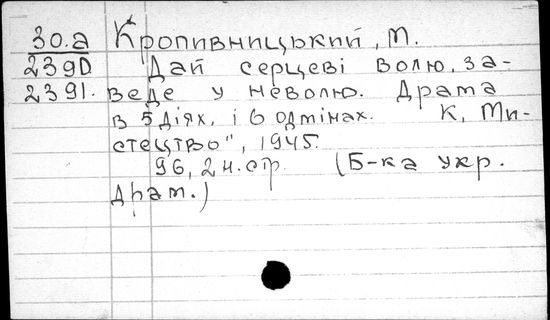 30.а Кропивницький, М.
2390 Дай серцеві волю, за-
2391. веде у неволю. Драма
в 5 діях, і 6 одмінах. К, Ми-
стецтво", 1945.
96, 2 н. стр. (Б-ка укр.
драм.)